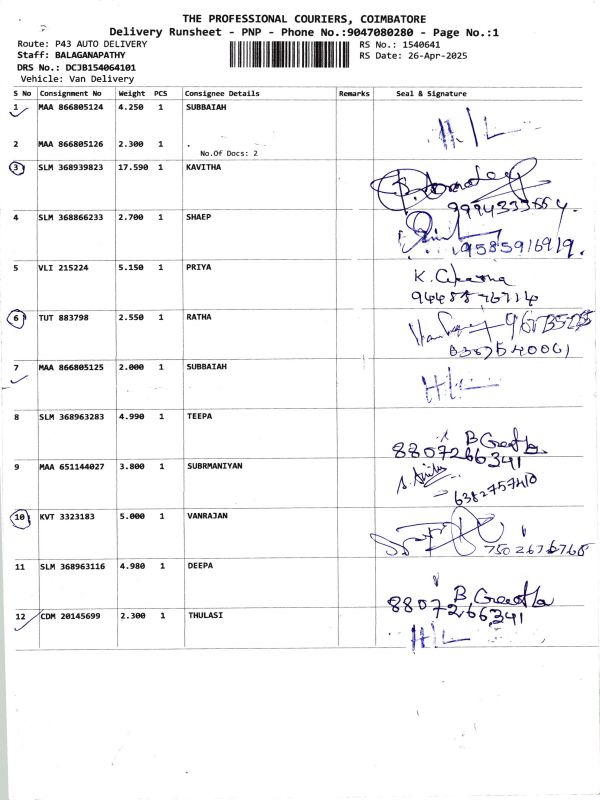 THE PROFESSIONAL COURIERS, COIMBATORE
Delivery Runsheet - PNP - Phone No.:9047080280 - Page No.:1
Route: P43 AUTO DELIVERY RS No.: 1540641
Staff: BALAGANAPATHY RS Date: 26-Apr-2025
DRS No.: DCJB154064101
Vehicle: Van Delivery
S No Consignment No Weight PCS Consignee Details Remarks Seal & Signature
1 MAA 866805124 4.250 1 SUBBAIAH
2 MAA 866805126 2.300 1 .
No.Of Docs: 2
3 SLM 368939823 17.590 1 KAVITHA
9994333664.
4 SLM 368866233 2.700 1 SHAEP
9585916919.
5 VLI 215224 5.150 1 PRIYA
6 TUT 883798 2.550 1 RATHA
7 MAA 866805125 2.000 1 SUBBAIAH
H/L
8 SLM 368963283 4.990 1 TEEPA
B Geetha
8807266341
9 MAA 651144027 3.800 1 SUBRMANIYAN
6382757410
10 KVT 3323183 5.000 1 VANRAJAN
11 SLM 368963116 4.980 1 DEEPA
B Geetha
8807266341
12 CDM 20145699 2.300 1 THULASI
H/L